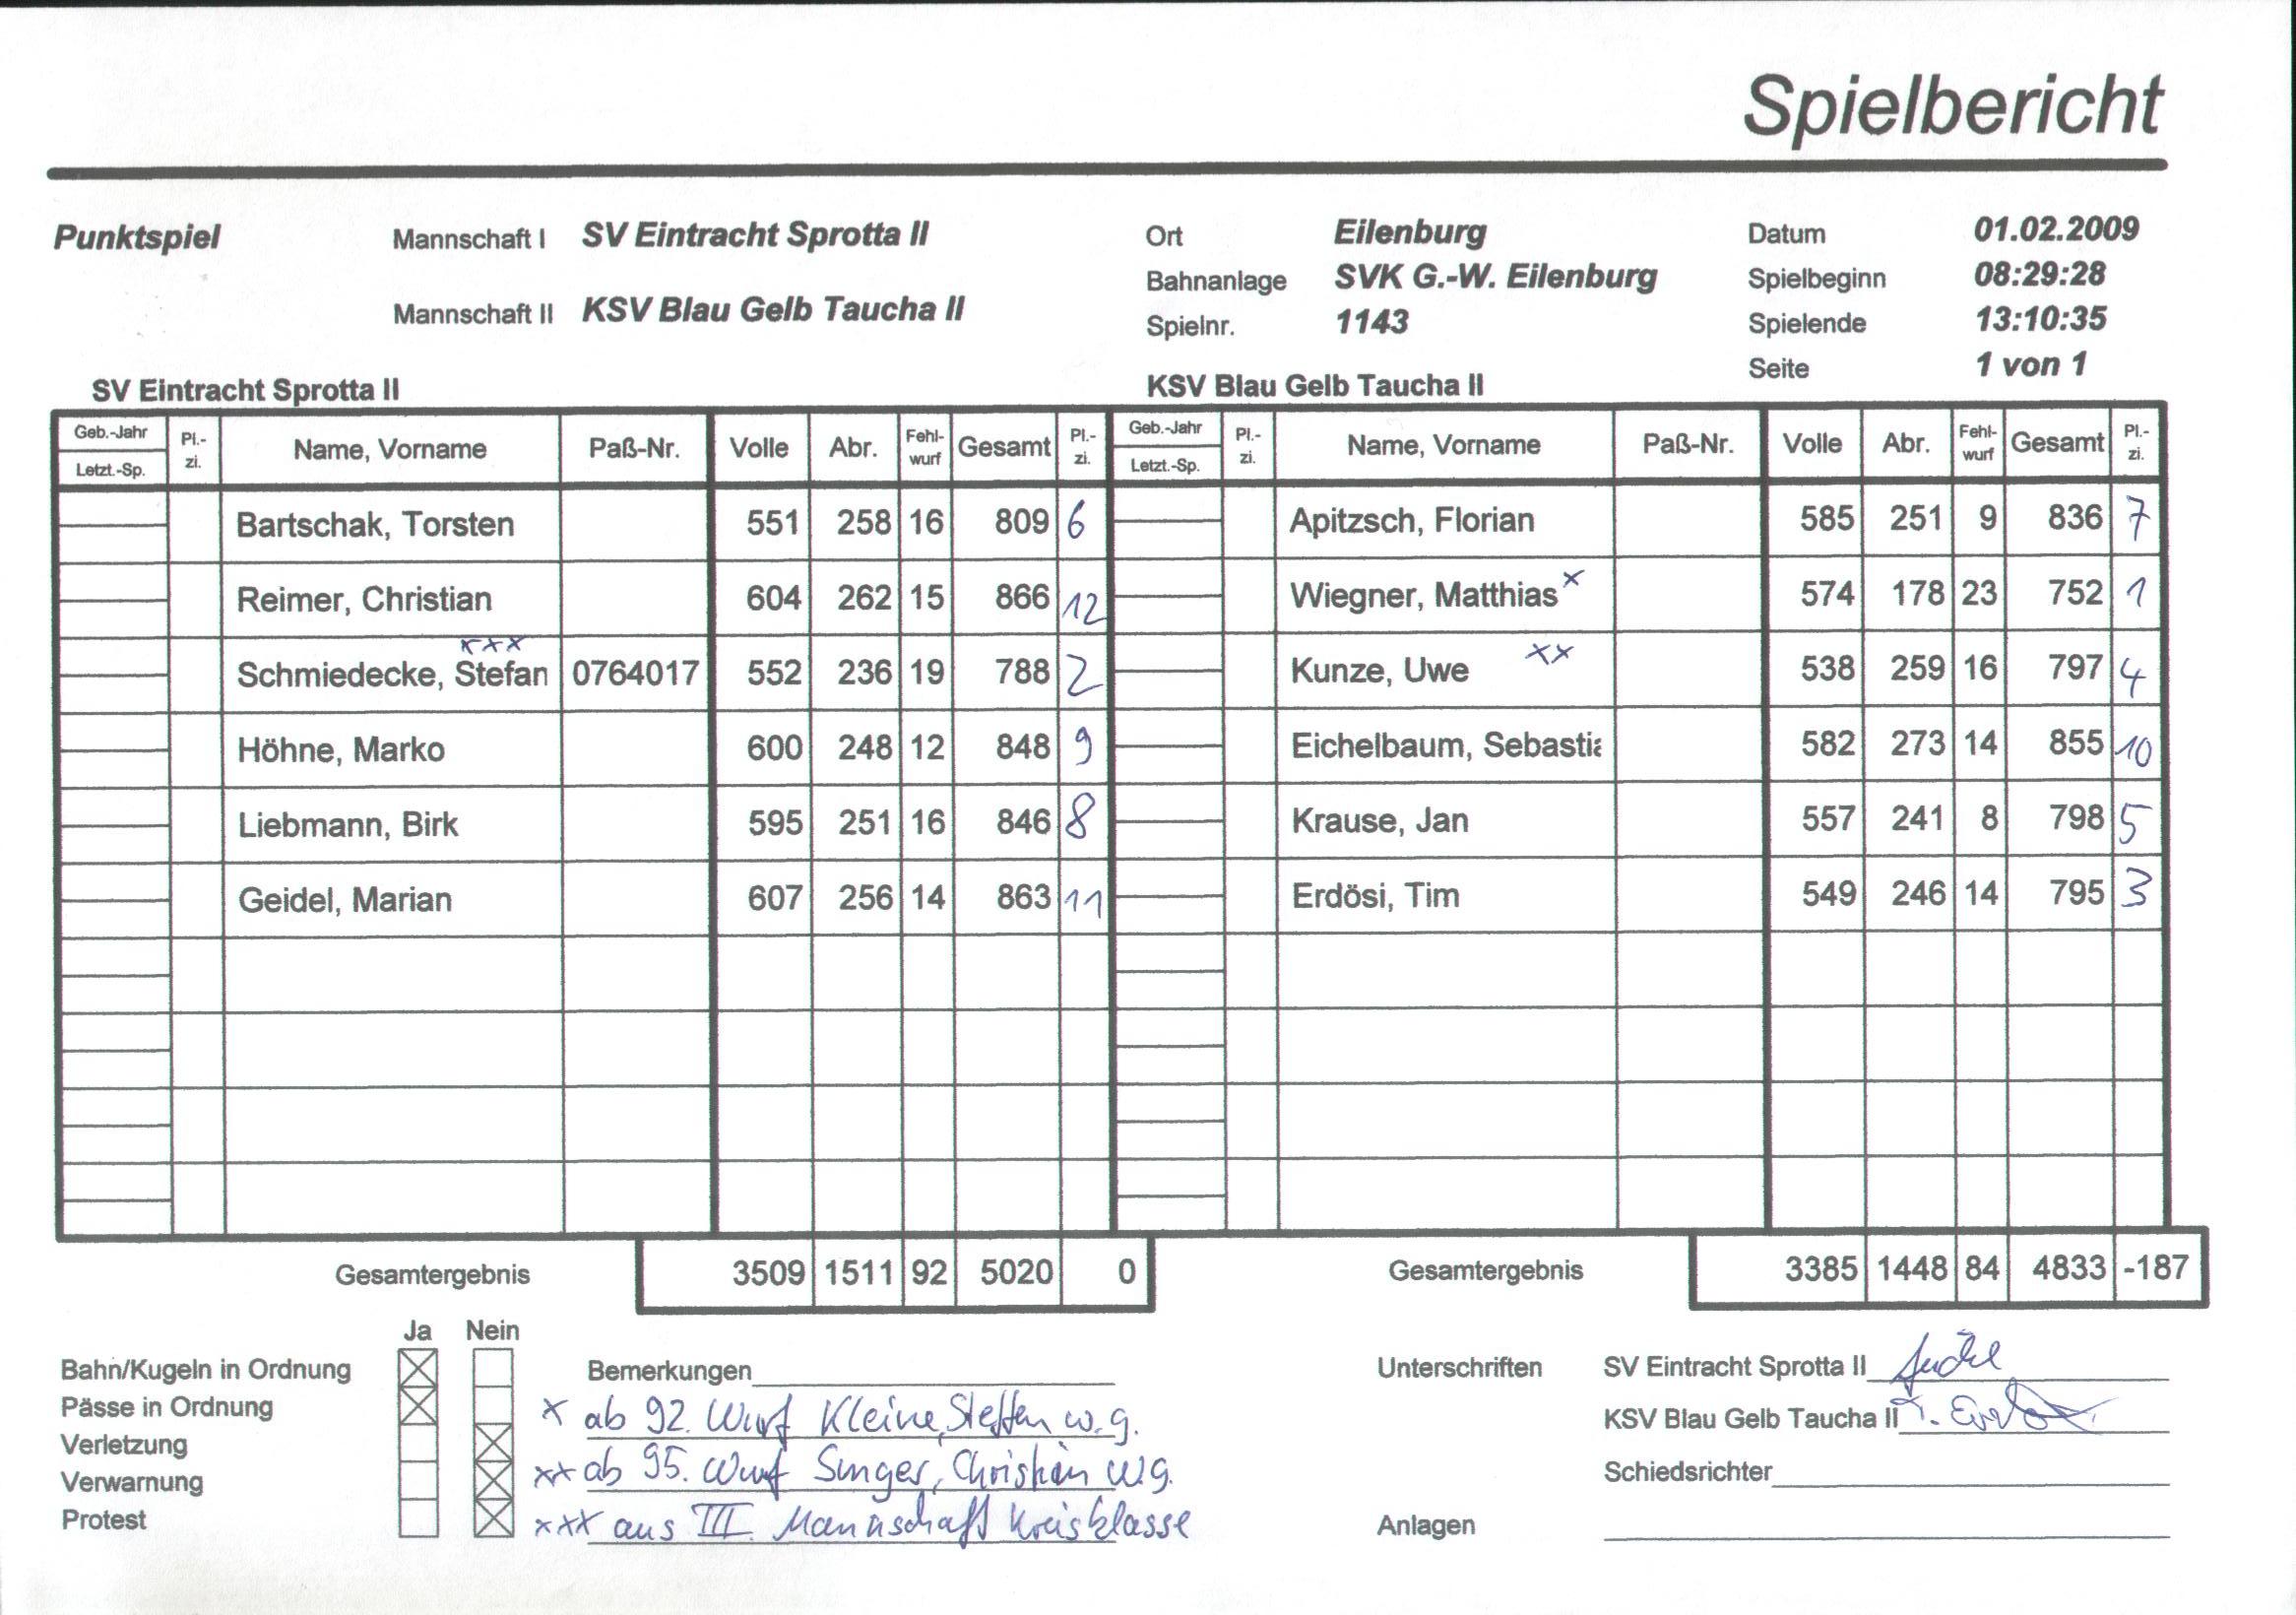 Spielbericht
Punktspiel Mannschaft I SV Eintracht Sprotta II Ort Eilenburg Datum 01.02.2009
Bahnanlage SVK G.-W. Eilenburg Spielbeginn 08:29:28
Mannschaft II KSV Blau Gelb Taucha II Spielnr. 1143 Spielende 13:10:35
Seite 1 von 1
SV Eintracht Sprotta II KSV Blau Gelb Taucha II
Geb.-Jahr Letzt.-Sp. Pl.-zi. Name, Vorname Paß-Nr. Volle Abr. Fehl-wurf Gesamt Pl.-zi. Geb.-Jahr Letzt.-Sp. Pl.-zi. Name, Vorname Paß-Nr. Volle Abr. Fehl-wurf Gesamt Pl.-zi.
Bartschak, Torsten 551 258 16 809 6 Apitzsch, Florian 585 251 9 836 7
Reimer, Christian 604 262 15 866 12 Wiegner, Matthias x 574 178 23 752 1
Schmiedecke, Stefan xxx 0764017 552 236 19 788 2 Kunze, Uwe xx 538 259 16 797 4
Höhne, Marko 600 248 12 848 9 Eichelbaum, Sebastia 582 273 14 855 10
Liebmann, Birk 595 251 16 846 8 Krause, Jan 557 241 8 798 5
Geidel, Marian 607 256 14 863 11 Erdösi, Tim 549 246 14 795 3
Gesamtergebnis 3509 1511 92 5020 0 Gesamtergebnis 3385 1448 84 4833 -187
Ja Nein
Bahn/Kugeln in Ordnung Bemerkungen Unterschriften SV Eintracht Sprotta II
Pässe in Ordnung x ab 92. Wurf Kleine, Steffen w.g. KSV Blau Gelb Taucha II
Verletzung
Verwarnung xx ab 95. Wurf Singer, Christian w.g. Schiedsrichter
Protest xxx aus III. Mannschaft Kreisklasse Anlagen